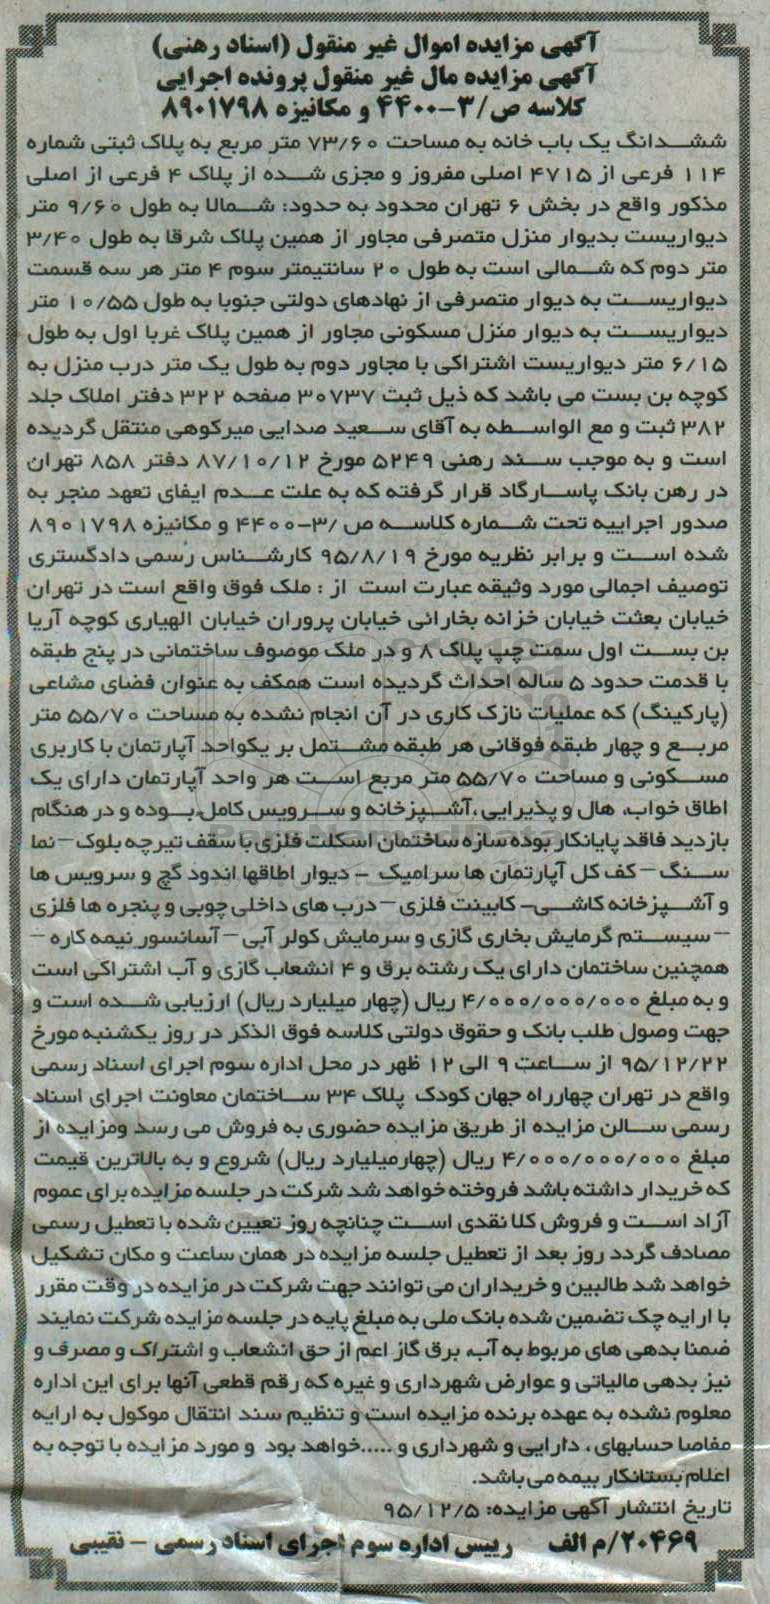 آگهی مزایده اموال غیر منقول (اسناد رهنی)
آگهی مزایده مال غیر منقول پرونده اجرایی
کلاسه ص/۳-۴۴۰۰ و مکانیزه ۸۹۰۱۷۹۸
ششدانگ یک باب خانه به مساحت ۷۳/۶۰ متر مربع به پلاک ثبتی شماره
۱۱۴ فرعی از ۴۷۱۵ اصلی مفروز و مجزی شده از پلاک ۴ فرعی از اصلی
مذکور واقع در بخش ۶ تهران محدود به حدود: شمالا به طول ۹/۶۰ متر
دیواریست بدیوار منزل متصرفی مجاور از همین پلاک شرقا به طول ۳/۴۰
متر دوم که شمالی است به طول ۲۰ سانتیمتر سوم ۴ متر هر سه قسمت
دیواریست به دیوار متصرفی از نهادهای دولتی جنوبا به طول ۱۰/۵۵ متر
دیواریست به دیوار منزل مسکونی مجاور از همین پلاک غربا اول به طول
۶/۱۵ متر دیواریست اشتراکی با مجاور دوم به طول یک متر درب منزل به
کوچه بن بست می باشد که ذیل ثبت ۳۰۷۳۷ صفحه ۳۲۲ دفتر املاک جلد
۳۸۲ ثبت و مع الواسطه به آقای سعید صدایی میرکوهی منتقل گردیده
است و به موجب سند رهنی ۵۲۴۹ مورخ ۸۷/۱۰/۱۲ دفتر ۸۵۸ تهران
در رهن بانک پاسارگاد قرار گرفته که به علت عدم ایفای تعهد منجر به
صدور اجراییه تحت شماره کلاسه ص /۳-۴۴۰۰ و مکانیزه ۸۹۰۱۷۹۸
شده است و برابر نظریه مورخ ۹۵/۸/۱۹ کارشناس رسمی دادگستری
توصیف اجمالی مورد وثیقه عبارت است از : ملک فوق واقع است در تهران
خیابان بعثت خیابان خزانه بخارائی خیابان پروران خیابان الهیاری کوچه آریا
بن بست اول سمت چپ پلاک ۸ و در ملک موصوف ساختمانی در پنج طبقه
با قدمت حدود ۵ ساله احداث گردیده است همکف به عنوان فضای مشاعی
(پارکینگ) که عملیات نازک کاری در آن انجام نشده به مساحت ۵۵/۷۰ متر
مربع و چهار طبقه فوقانی هر طبقه مشتمل بر یکواحد آپارتمان با کاربری
مسکونی و مساحت ۵۵/۷۰ متر مربع است هر واحد آپارتمان دارای یک
اطاق خواب، هال و پذیرایی ،آشپزخانه و سرویس کامل،بوده و در هنگام
بازدید فاقد پایانکار بوده سازه ساختمان اسکلت فلزی با سقف تیرچه بلوک – نما
سنگ – کف کل آپارتمان ها سرامیک – دیوار اطاقها اندود گچ و سرویس ها
و آشپزخانه کاشی- کابینت فلزی – درب های داخلی چوبی و پنجره ها فلزی
– سیستم گرمایش بخاری گازی و سرمایش کولر آبی – آسانسور نیمه کاره –
همچنین ساختمان دارای یک رشته برق و ۴ انشعاب گازی و آب اشتراکی است
و به مبلغ ۴/۰۰۰/۰۰۰/۰۰۰ ریال (چهار میلیارد ریال) ارزیابی شده است و
جهت وصول طلب بانک و حقوق دولتی کلاسه فوق الذکر در روز یکشنبه مورخ
۹۵/۱۲/۲۲ از ساعت ۹ الی ۱۲ ظهر در محل اداره سوم اجرای اسناد رسمی
واقع در تهران چهارراه جهان کودک پلاک ۳۴ ساختمان معاونت اجرای اسناد
رسمی سالن مزایده از طریق مزایده حضوری به فروش می رسد ومزایده از
مبلغ ۴/۰۰۰/۰۰۰/۰۰۰ ریال (چهارمیلیارد ریال) شروع و به بالاترین قیمت
که خریدار داشته باشد فروخته خواهد شد شرکت در جلسه مزایده برای عموم
آزاد است و فروش کلا نقدی است چنانچه روز تعیین شده با تعطیل رسمی
مصادف گردد روز بعد از تعطیل جلسه مزایده در همان ساعت و مکان تشکیل
خواهد شد طالبین و خریداران می توانند جهت شرکت در مزایده در وقت مقرر
با ارایه چک تضمین شده بانک ملی به مبلغ پایه در جلسه مزایده شرکت نمایند
ضمنا بدهی های مربوط به آب، برق گاز اعم از حق انشعاب و اشتراک و مصرف و
نیز بدهی مالیاتی و عوارض شهرداری و غیره که رقم قطعی آنها برای این اداره
معلوم نشده به عهده برنده مزایده است و تنظیم سند انتقال موکول به ارایه
مفاصا حسابهای ، دارایی و شهرداری و .....خواهد بود و مورد مزایده با توجه به
اعلام بستانکار بیمه می باشد.
تاریخ انتشار آگهی مزایده: ۹۵/۱۲/۵
۲۰۴۶۹/م الف رییس اداره سوم اجرای اسناد رسمی – نقیبی